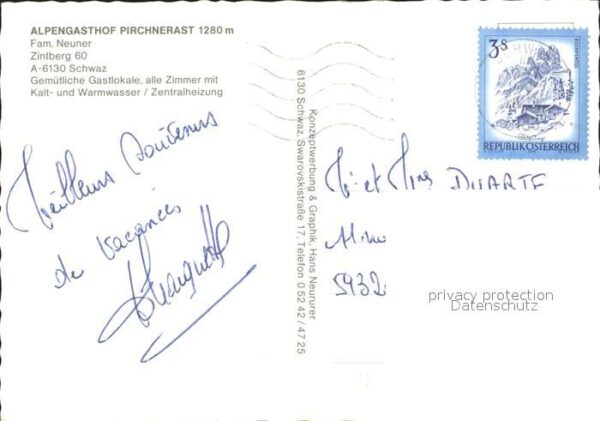 ALPENGASTHOF PIRCHNERAST 1280 m
Fam. Neuner
Zintberg 60
A-6130 Schwaz
Gemütliche Gastlokale, alle Zimmer mit
Kalt- und Warmwasser / Zentralheizung
Meilleurs Souvenirs
de Vacances
Konzeptwerbung & Graphik, Hans Neururer
6130 Schwaz, Swarovskistraße 17, Telefon 0 52 42 / 47 25
3S
REPUBLIK ÖSTERREICH
Mr et Mme DUARTE
5932
privacy protection
Datenschutz